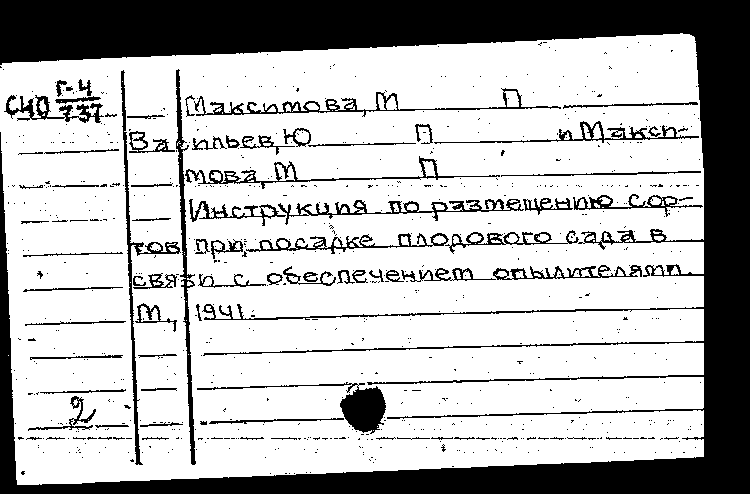 СЧО Г-4
737
Максимова, М П
Васильев, Ю П и Макси-
мова, М П
Инструкция по размещению сор-
тов при посадке плодового сада в
связи с обеспечением опылителями.
М., 1941.
2